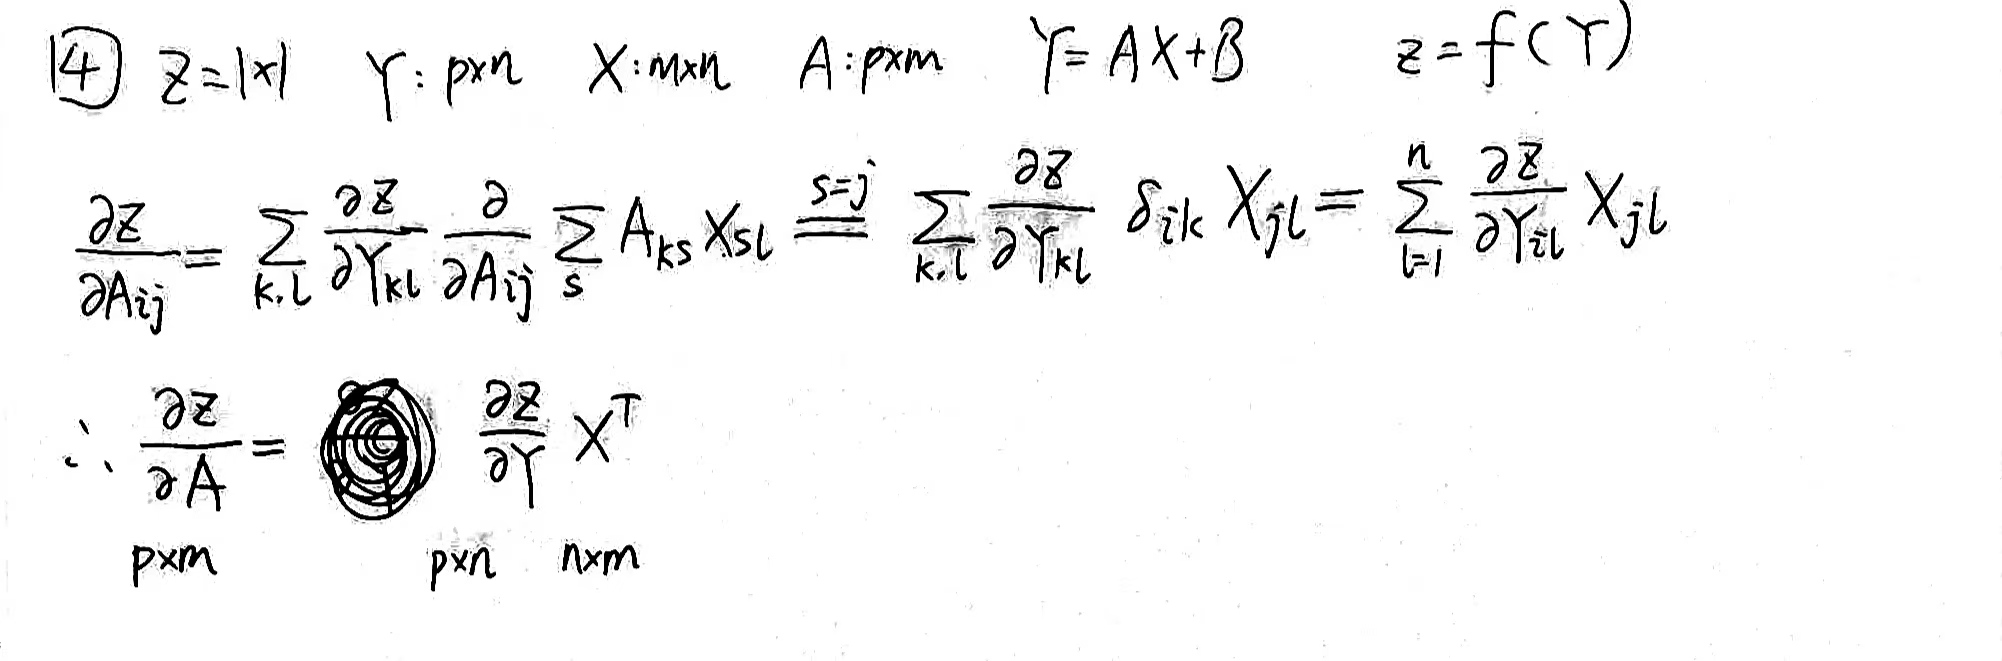 ④ z=|×| Y: p×n X: m×n A: p×m Y=AX+B z=f(Y)
∂z/∂A_ij = Σ_{k,l} ∂z/∂Y_kl ∂/∂A_ij Σ_s A_ks X_sl =^{s=j} Σ_{k,l} ∂z/∂Y_kl δ_ik X_jl = Σ_{l=1}^{n} ∂z/∂Y_il X_jl
∴ ∂z/∂A = ∂z/∂Y X^T
p×m p×n n×m